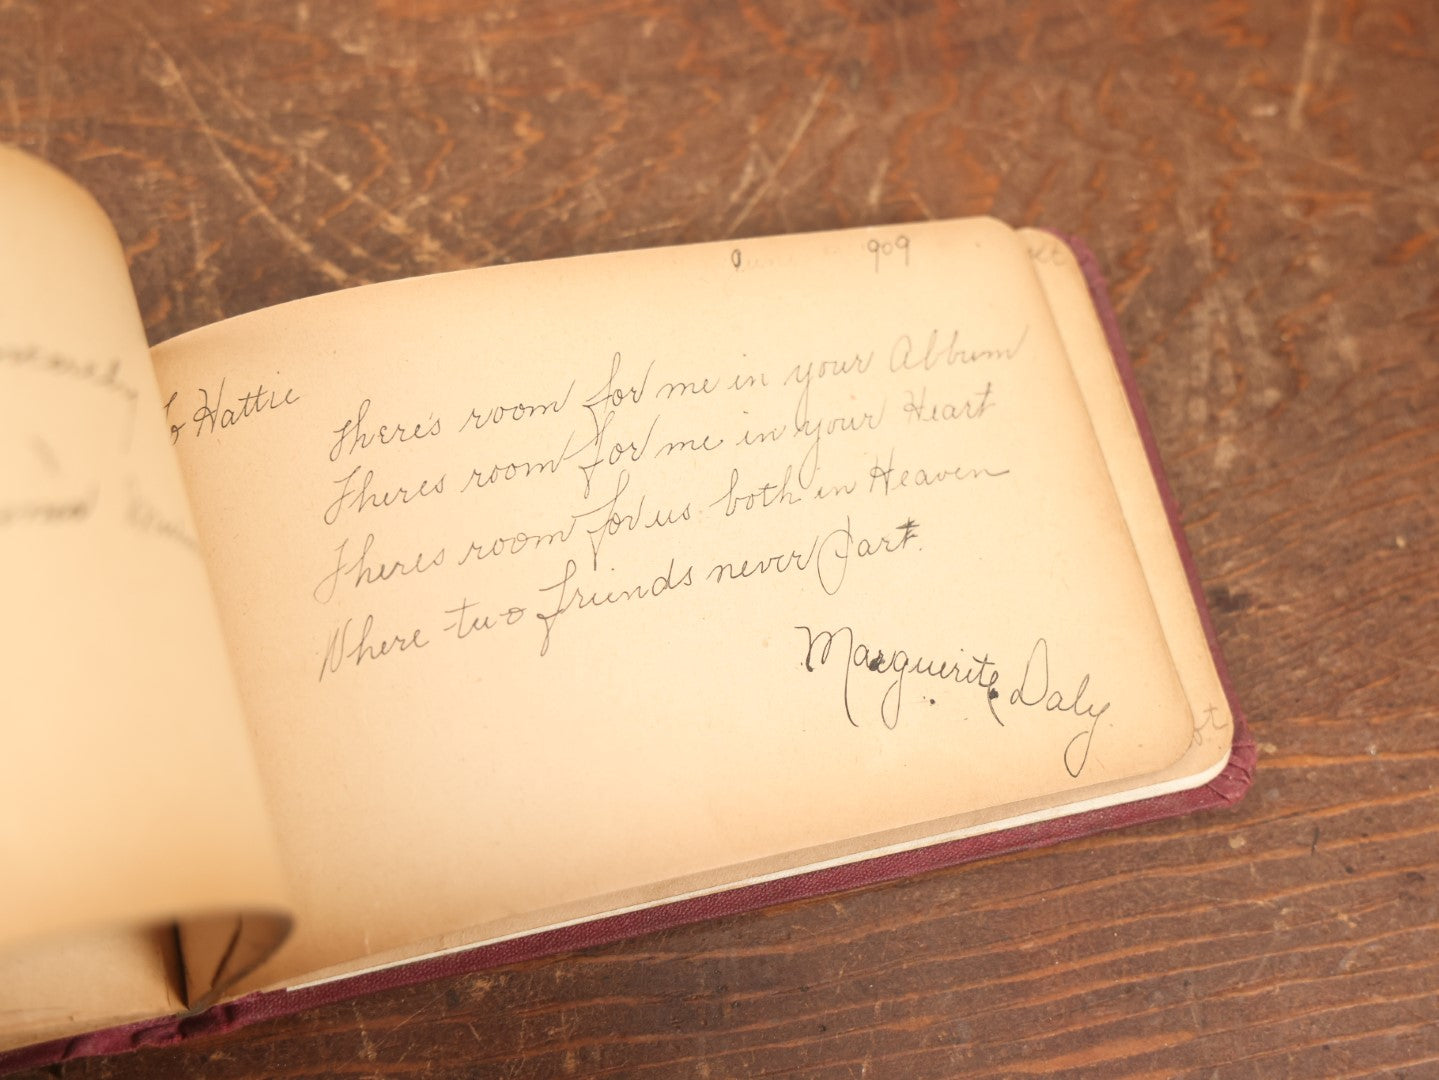 1909
To Hattie
There's room for me in your Album
Theres room for me in your Heart
Theres room for us both in Heaven
Where two friends never Part.
Marguerite Daly.